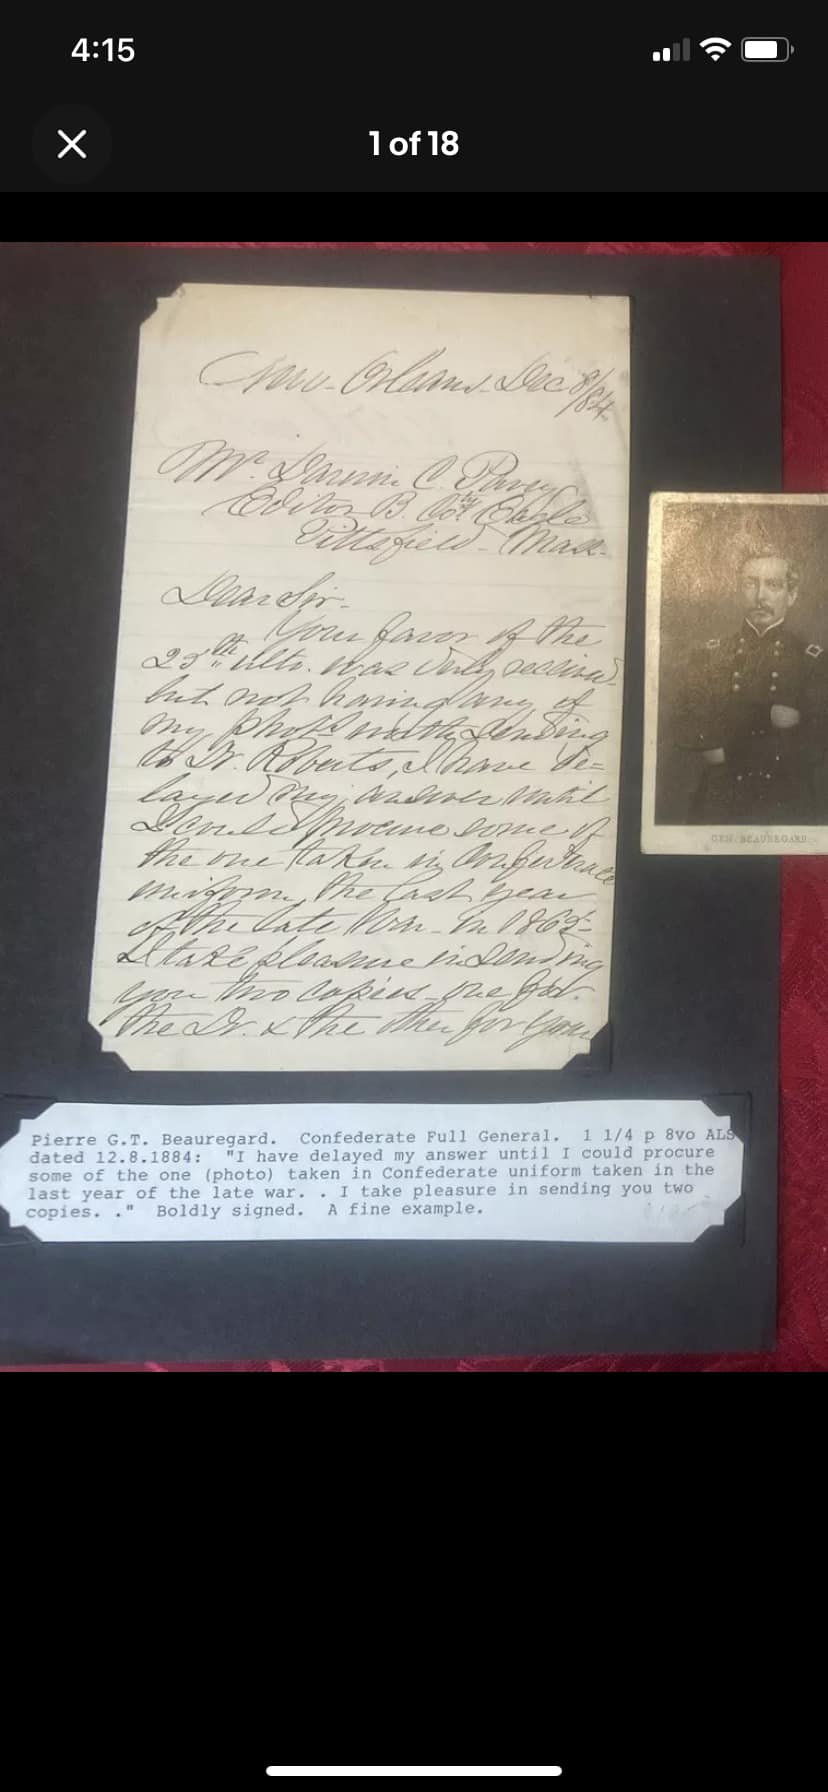 4:15
1 of 18
New-Orleans. Dec 8/84.
Mr. C.
Editor B. Coty Eagle
Pittsfield. Mass.
Dear Sir.
Your favor of the
25th ulto. was duly received
but not having any of
my photo worth sending
to Dr. Roberts, I have de=
layed my answer until
I could procure some of
the one taken in Confederate
uniform, the last year
of the late War - in 1865-
I take pleasure in sending
you two copies one for
the Dr. & the other for your
GEN. BEAUREGARD.
Pierre G.T. Beauregard. Confederate Full General. 1 1/4 p 8vo ALS
dated 12.8.1884: "I have delayed my answer until I could procure
some of the one (photo) taken in Confederate uniform taken in the
last year of the late war. . I take pleasure in sending you two
copies. ." Boldly signed. A fine example.